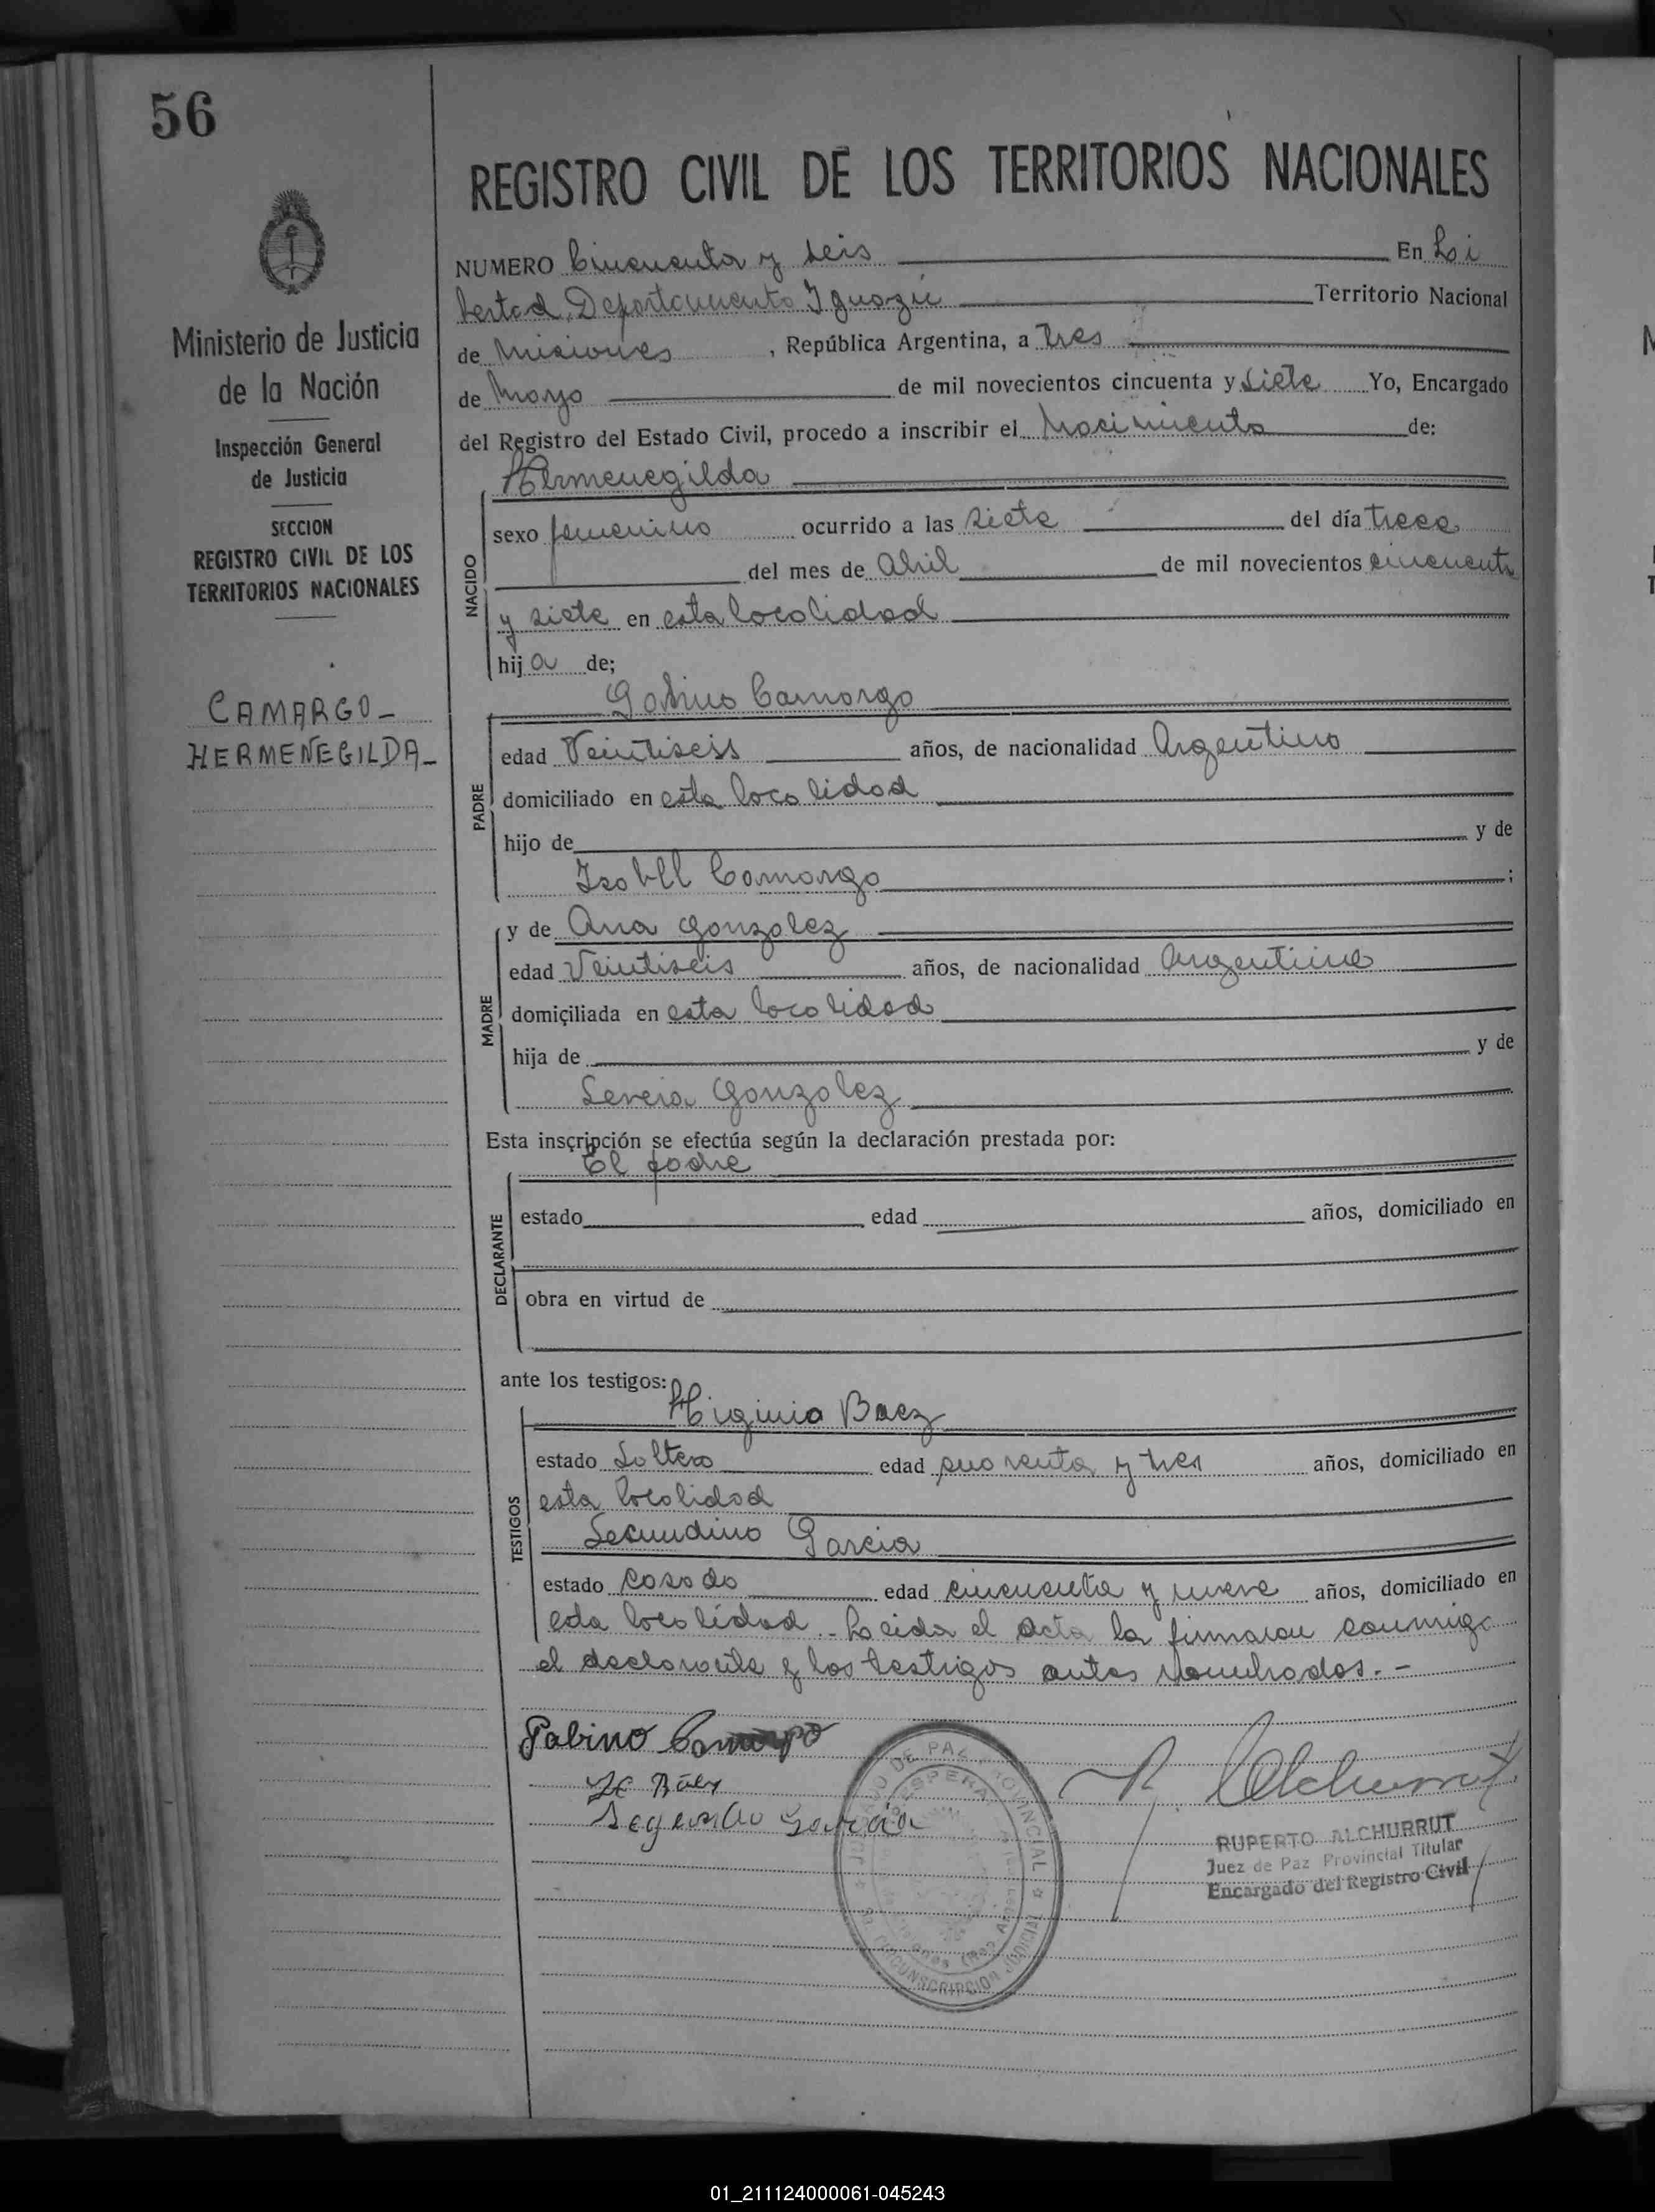 56
REGISTRO CIVIL DE LOS TERRITORIOS NACIONALES
Ministerio de Justicia
de la Nación
Inspección General
de Justicia
SECCION
REGISTRO CIVIL DE LOS
TERRITORIOS NACIONALES
CAMARGO_
HERMENEGILDA_
NUMERO Cincuenta y seis En Li
bertad, Departamento Iguazú Territorio Nacional
de Misiones, República Argentina, a tres
de Mayo de mil novecientos cincuenta y siete Yo, Encargado
del Registro del Estado Civil, procedo a inscribir el Nacimiento de:
Hermenegilda
NACIDO
sexo femenino ocurrido a las siete del día trece
del mes de Abril de mil novecientos cincuenta
y siete en esta localidad
hija de;
Gabino Camargo
PADRE
edad Veintiseis años, de nacionalidad Argentino
domiciliado en esta localidad
hijo de y de
Isabel Camargo;
MADRE
y de Ana Gonzalez
edad Veintiseis años, de nacionalidad Argentina
domiciliada en esta localidad
hija de y de
Gonzalez
Esta inscripción se efectúa según la declaración prestada por:
El padre
DECLARANTE
estado edad años, domiciliado en
obra en virtud de
ante los testigos:
Higinio Baez
TESTIGOS
estado Soltero edad cuarenta y tres años, domiciliado en
esta localidad
Secundino Garcia
estado casado edad cincuenta y nueve años, domiciliado en
esta localidad.- Leida el acta la firmaron conmigo
el declarante y los testigos antes nombrados.-
Gabino Camargo
H Báez
Segundo Garcia
R. Alchurrut
JUZGADO DE PAZ PROVINCIAL
ESPERANZA
Misiones (Rep. Argentina)
CIRCUNSCRIPCION JUDICIAL
RUPERTO ALCHURRUT
Juez de Paz Provincial Titular
Encargado del Registro Civil
01_211124000061-045243